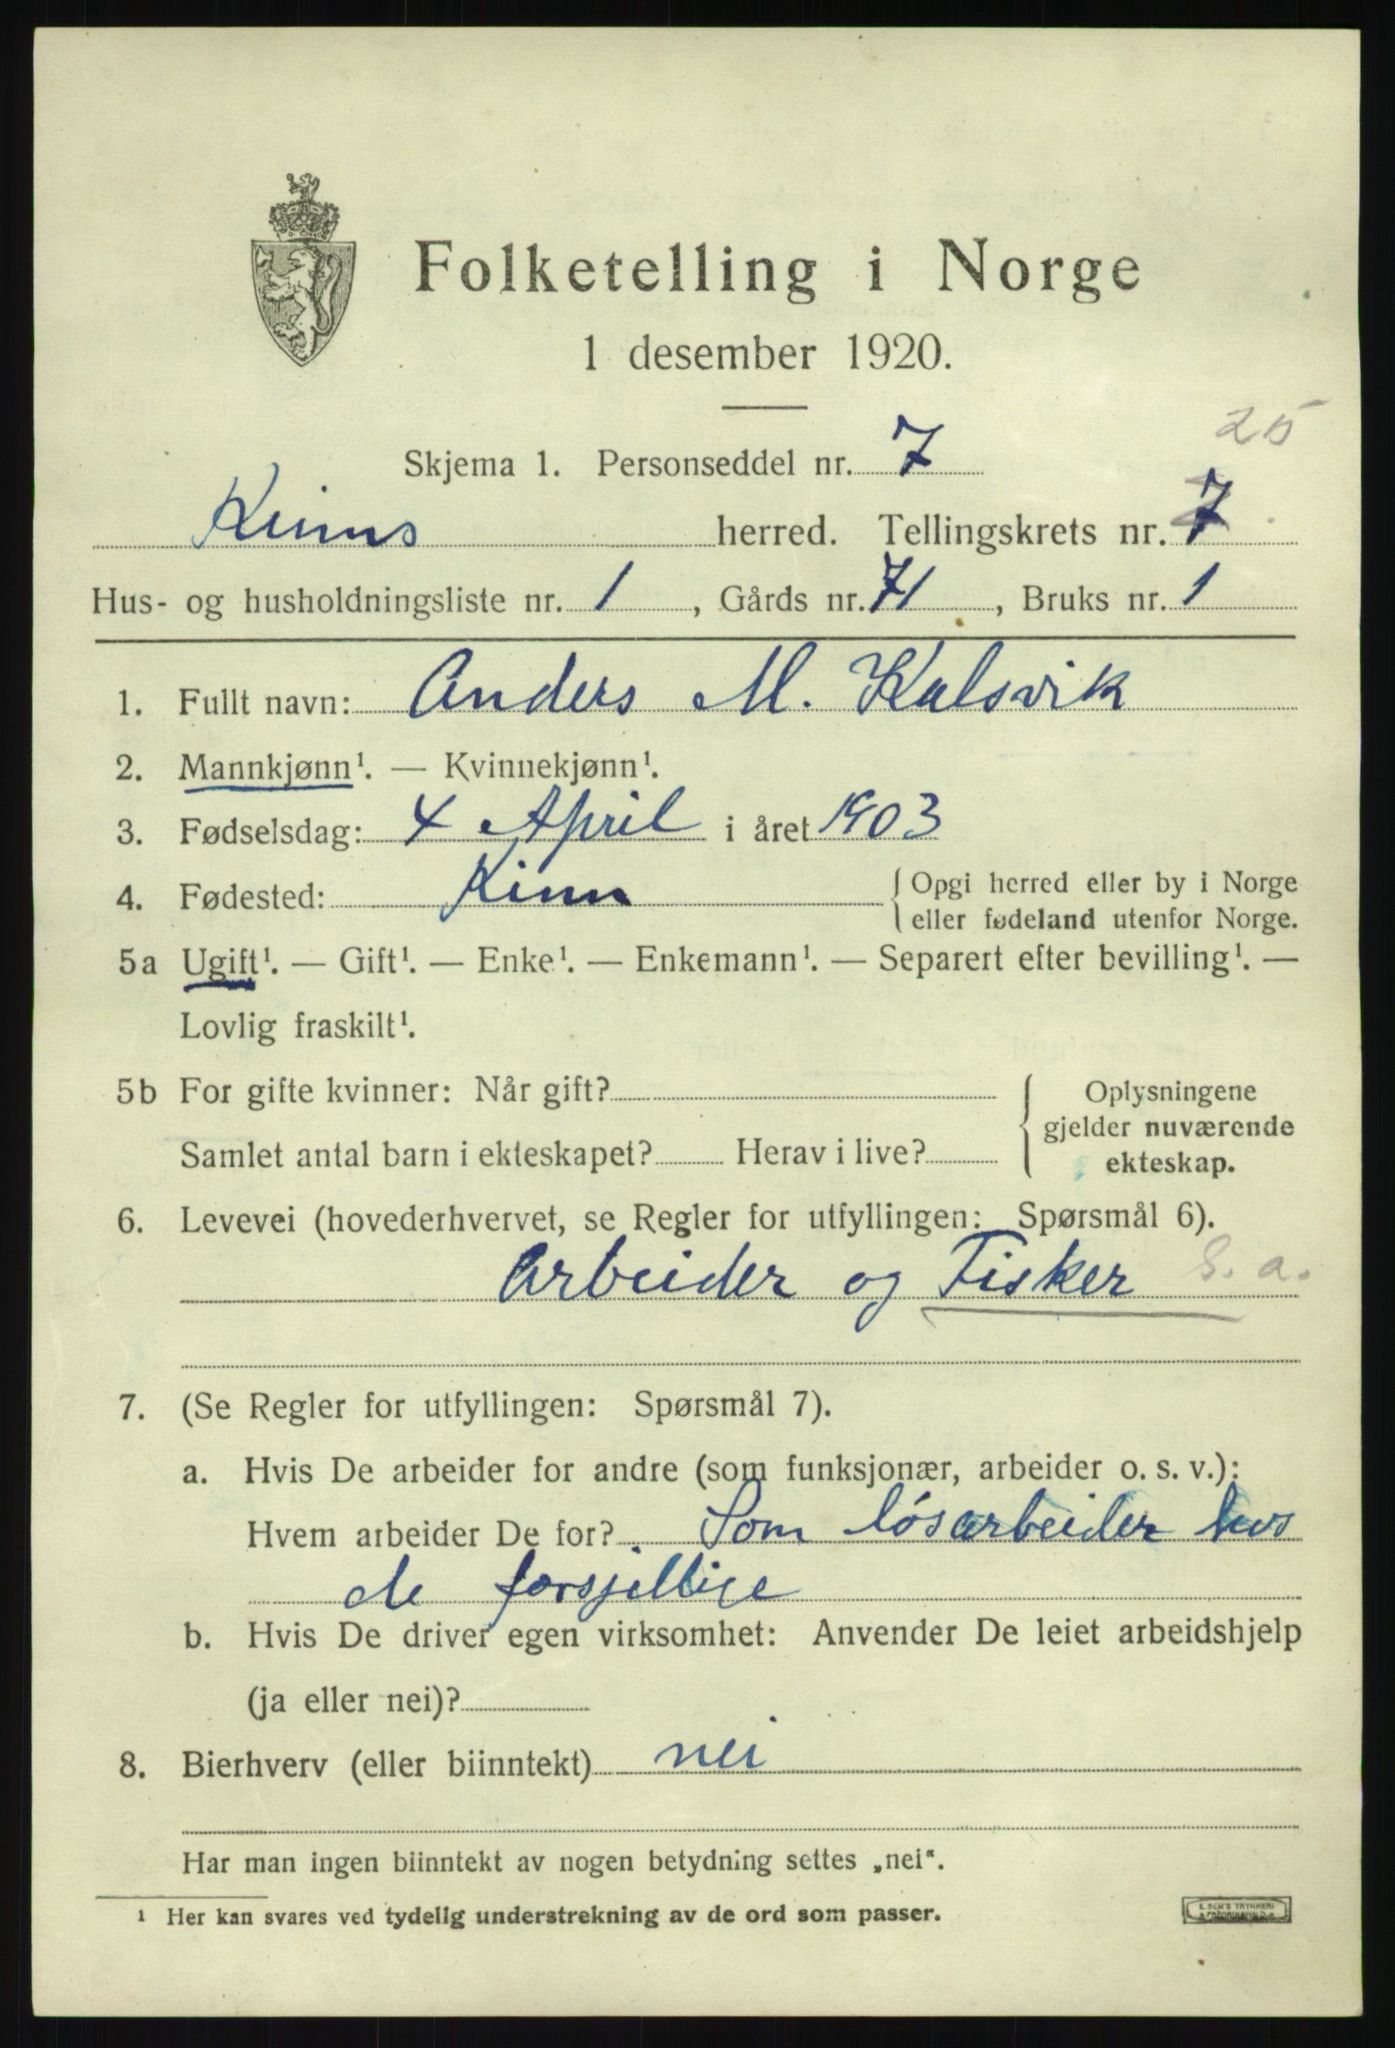 Folketelling i Norge
1 desember 1920.
25
Skjema 1. Personseddel nr. 7
Kinns herred. Tellingskrets nr. 7
Hus- og husholdningsliste nr. 1, Gårds nr. 71, Bruks nr. 1
1. Fullt navn: Anders M. Kalsvik
2. Mannkjønn¹. — Kvinnekjønn¹.
3. Fødselsdag: 4 April i året 1903
4. Fødested: Kinn { Opgi herred eller by i Norge
eller fødeland utenfor Norge.
5a Ugift¹. — Gift¹. — Enke¹. — Enkemann¹. — Separert efter bevilling¹. —
Lovlig fraskilt¹.
5b For gifte kvinner: Når gift? { Oplysningene
gjelder nuværende
Samlet antal barn i ekteskapet? Herav i live? ekteskap.
6. Levevei (hovederhvervet, se Regler for utfyllingen: Spørsmål 6).
Arbeider og Fisker S. a.
7. (Se Regler for utfyllingen: Spørsmål 7).
a. Hvis De arbeider for andre (som funksjonær, arbeider o. s. v.):
Hvem arbeider De for? Som løsarbeider hos
de forsjellige
b. Hvis De driver egen virksomhet: Anvender De leiet arbeidshjelp
(ja eller nei)?
8. Bierhverv (eller biinntekt) nei
Har man ingen biinntekt av nogen betydning settes „nei“.
¹ Her kan svares ved tydelig understrekning av de ord som passer.